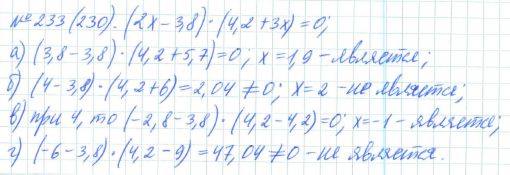 № 233 (230). (2x - 3,8) · (4,2 + 3x) = 0;
а) (3,8 - 3,8) · (4,2 + 5,7) = 0; x = 1,9 - является;
б) (4 - 3,8) · (4,2 + 6) = 2,04 ≠ 0; x = 2 - не является;
в) при 4, то (-2,8 - 3,8) · (4,2 - 4,2) = 0; x = -1 - является;
г) (-6 - 3,8) · (4,2 - 9) = 47,04 ≠ 0 - не является.